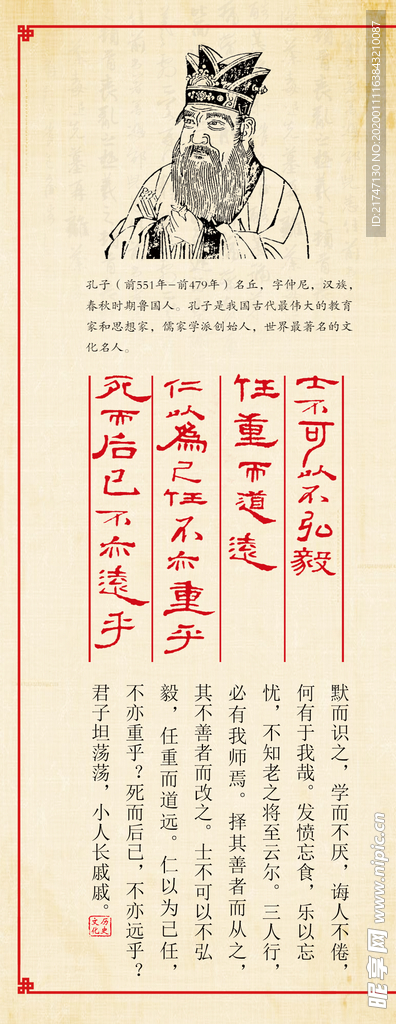 孔子（前551年-前479年）名丘，字仲尼，汉族，
春秋时期鲁国人。孔子是我国古代最伟大的教育
家和思想家，儒家学派创始人，世界最著名的文
化名人。
士不可以不弘毅
任重而道遠
仁以為己任不亦重乎
死而后已不亦遠乎
默而识之，学而不厌，诲人不倦，
何有于我哉。发愤忘食，乐以忘
忧，不知老之将至云尔。三人行，
必有我师焉。择其善者而从之，
其不善者而改之。士不可以不弘
毅，任重而道远。仁以为己任，
不亦重乎？死而后已，不亦远乎？
君子坦荡荡，小人长戚戚。
历史
文化
ID:21747130 NO:20200111163843210087
昵享网 www.nipic.cn